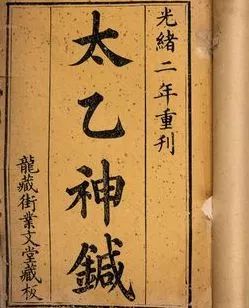 光緒二年重刊
太乙神鍼
龍藏街業文堂藏板